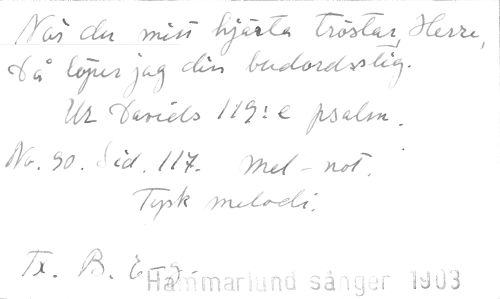 När du mitt hjärta tröstar, Herre,
Då löper jag din budordsstig.
Ur Davids 119:e psalm.
No. 90. Sid. 117. Mel-not.
Tysk melodi.
Tx. B. E-g.
Hammarlund sånger 1903